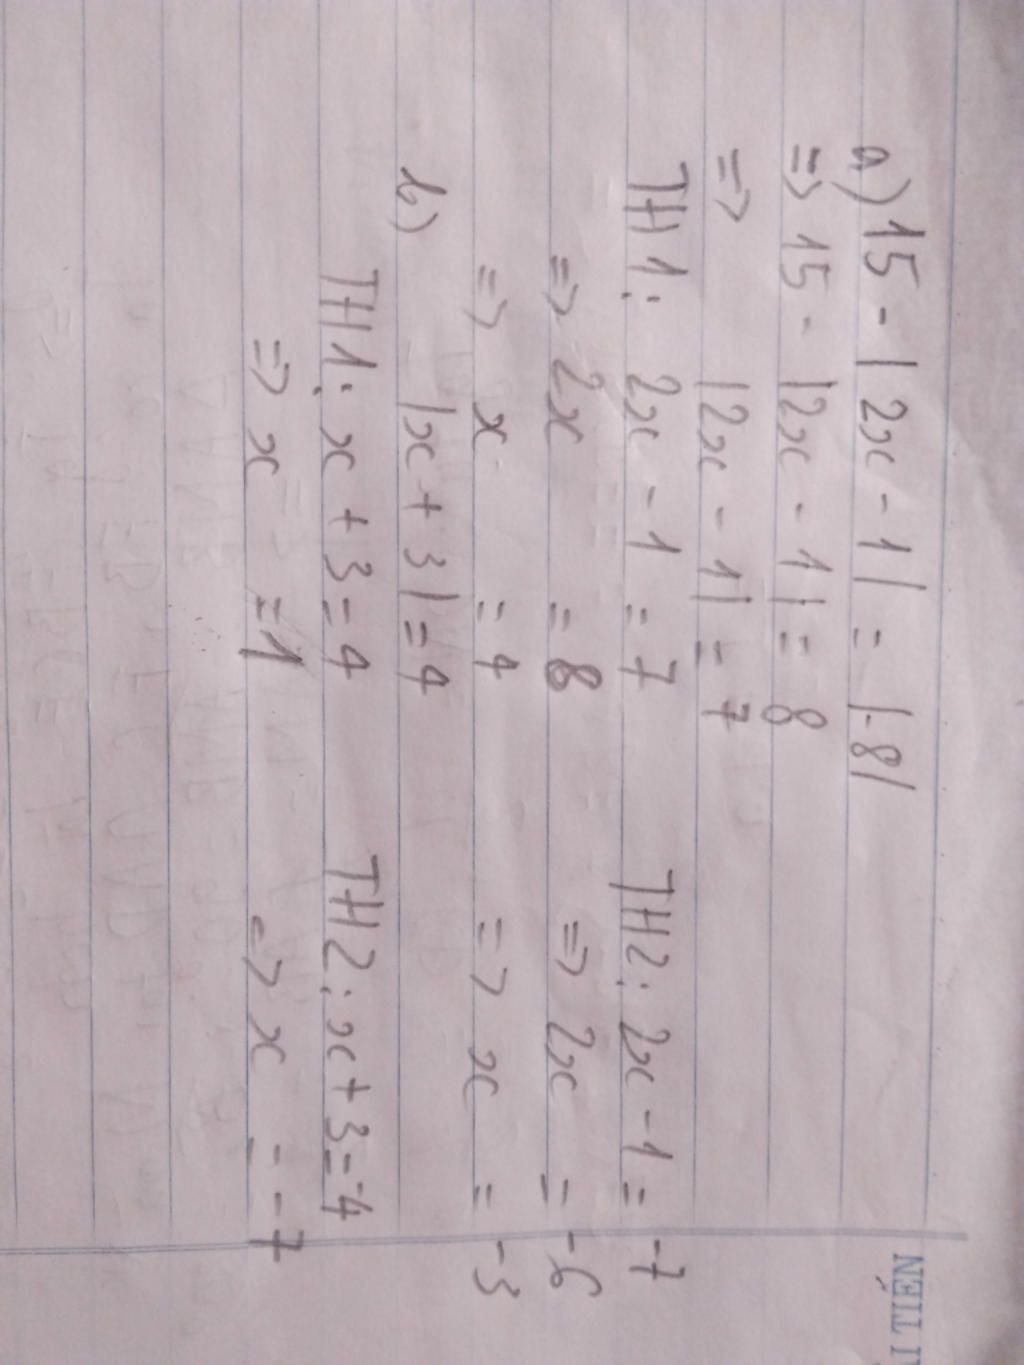 ẢI TIẾN
a) 15 - |2x - 1| = |-8|
=> 15 - |2x - 1| = 8
=> |2x - 1| = 7
TH1: 2x - 1 = 7 TH2: 2x - 1 = -7
=> 2x = 8 => 2x = -6
=> x = 4 => x = -3
b) |x + 3| = 4
TH1: x + 3 = 4 TH2: x + 3 = -4
=> x = 1 => x = -7